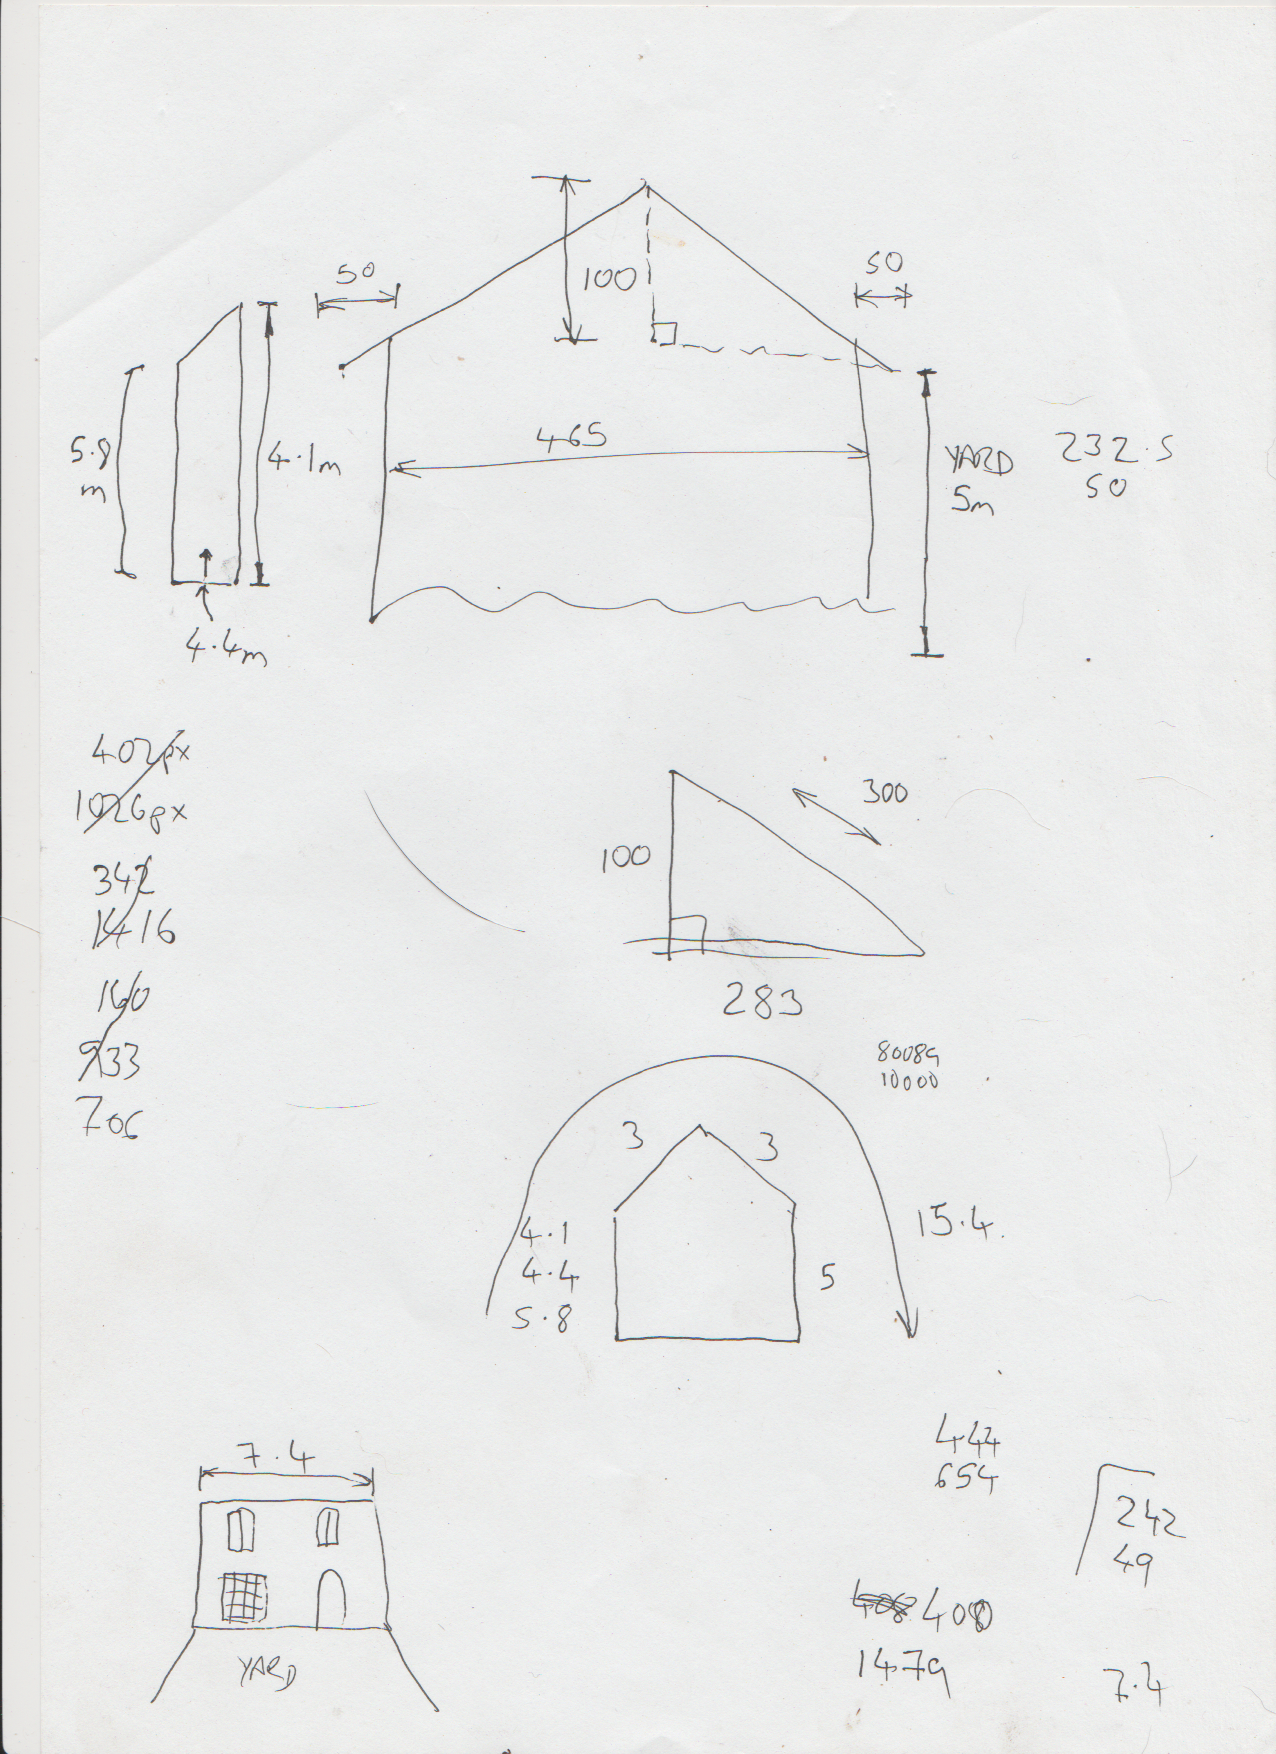 50
50
100
5.8
m
4.1m
465
YARD
5m
232.5
50
4.4m
402px
1026px
342
1416
160
933
706
300
100
283
80089
10000
3
3
4.1
4.4
5.8
5
15.4
7.4
YARD
444
654
242
49
408 408
1479
7.4